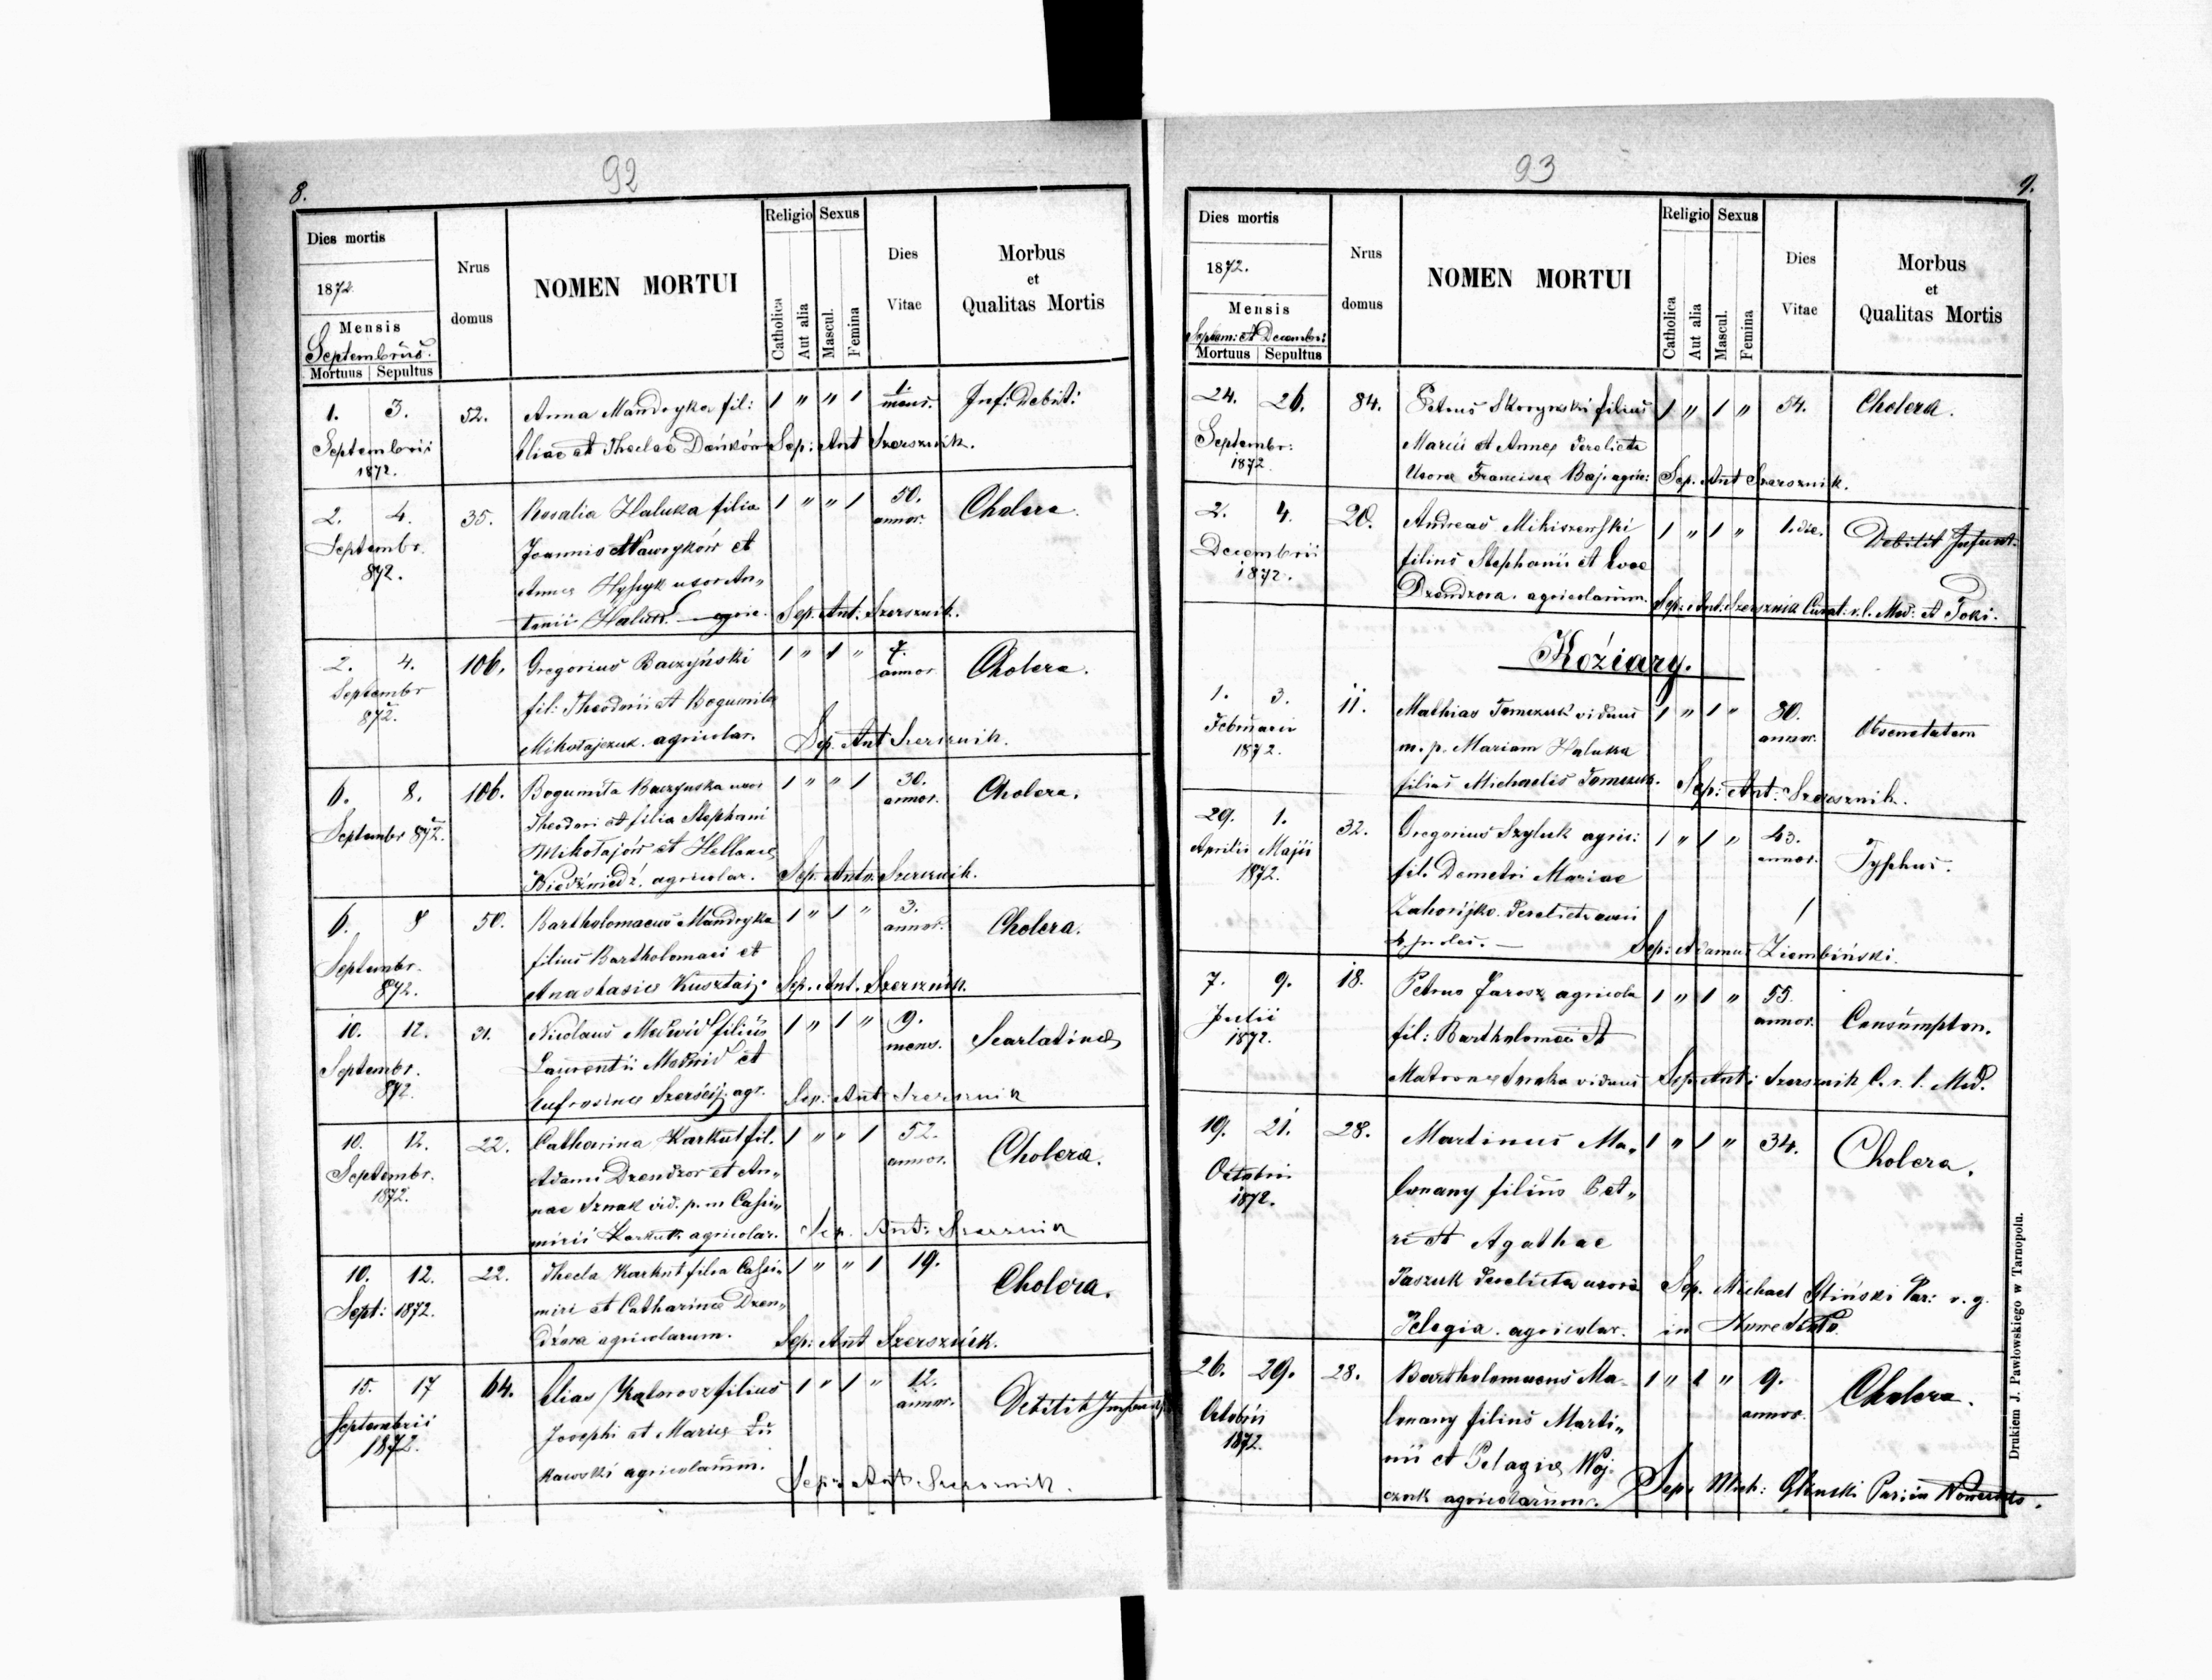 92
8.
Dies mortis
1872.
Mensis
Septembris.
Mortuus Sepultus
Nrus
domus
NOMEN MORTUI
Religio Sexus
Catholica
Aut alia
Mascul.
Femina
Dies
Vitae
Morbus
et
Qualitas Mortis
1. 3. 52. Anna Mandryka fil: 1 " " 1 1 mens. Inf: Debit:
Septembris Eliae et Theclae Dańków Sep: Ant Szersznik.
1872.
2. 4. 35. Rosalia Haluka filia 1 " " 1 50. Cholera.
Septembr. Joannis Nawryków et annor.
872. Annae uxor An„
tonii agric. Sep. Ant: Szersznik.
2. 4. 106. Gregorius Baczyński 1 " 1 " 7. Cholera.
Septembr fil: Theodorii et Bogumila annor
872. Mikołajczuk. agricolar. Sep. Ant Szersznik.
6. 8. 106. Bogumiła Baczynska uxor 1 " " 1 30. Cholera.
Septembr 872. Theodori et filia Stephani annor.
Mikołajów et Hellenae
agricolar. Sep. Anto. Szersznik.
6. 8 50. Bartholomaeus Mandryka 1 " 1 " 3. Cholera.
Septembr. filius Bartholomaei et annor.
872. Anastasiae Kusztaij. Sep. Ant. Szersznik.
10. 12. 31. Nicolaus Medwid filius 1 " 1 " 9. Scarlatina
Septembr. Laurentii Medwid et mens.
872. Eufrosinae agr. Sep: Ant Szersznik
10. 12. 22. Catharina Karkut fil. 1 " " 1 52. Cholera.
Septembr. Adami Dzendzor et An„ annor.
1872. nae Sznak vid. p. m Cassi„
mirii Karkut. agricolar. Sep. Ant: Szersznik
10. 12. 22. Thecla Karkut filia Cassi„ 1 " " 1 19. Cholera.
Sept: 1872. miri et Catharina Dzen„
dzora agricolarum. Sep: Ant Szersznik.
15. 17 64. Elias filius 1 " 1 " 12. Debilit
Septembrii Josephi et Mariae Łu annor.
1872. kawski agricolarum. Sep: Ant Szersznik.
93
9.
Dies mortis
1872.
Mensis
Septem: et Decembri:
Mortuus Sepultus
Nrus
domus
NOMEN MORTUI
Religio Sexus
Catholica
Aut alia
Mascul.
Femina
Dies
Vitae
Morbus
et
Qualitas Mortis
24. 26. 84. Petrus Skorynski filius 1 " 1 " 54. Cholera.
Septembr: Marii et Annae derelicta
1872 Uxore Francisca Baj. agric: Sep. Ant Szersznik.
2. 4. 20. Andreas Mikiszewski 1 " 1 " 1. die. Debilit Infant.
Decembrii filius Stephanii et Evae
1872. Dzendzora. agricolarum. Sep: Ant: Szersznik Curat: r. l. Med: et Toki.
Koziary.
1. 3. 11. Mathias Tomczuk viduus 1 " 1 " 80. Obsenetatem
Februarii m. p. Mariam Haluka annor.
1872. filius Michaelis Tomczuk. Sep: Ant: Szersznik.
29. 1. 32. Gregorius Szyluk agric: 1 " 1 " 43. Typhus.
Aprilis Maji fil. Demetri Mariae annor.
1872. Zahorijko. derelicta
4 proles. — Sep: Adamus Ziembiński.
7. 9. 18. Petrus Jarosz agricola 1 " 1 " 55. Consumption.
Julii fil: Bartholomaei et annor.
1872. Matronae viduus Sep: Ant: Szersznik C. r. l. Med.
19. 21. 28. Martinus Ma„ 1 " 1 " 34. Cholera.
Octobri lanany filius Pet„
1872. ri et Agathae
Paszuk derelicta uxore Sep. Michael Gliński Par: r. g.
Pelagia. agricolar. in
26. 29. 28. Bartholomaeus Ma- 1 " 1 " 9. Cholera.
Octobrii lanany filius Marti„ annor.
1872. nii et Pelagia Woj-
czuk agricolarum. Sep: Mich: Glinski Par: in
Drukiem J. Pawłowskiego w Tarnopolu.